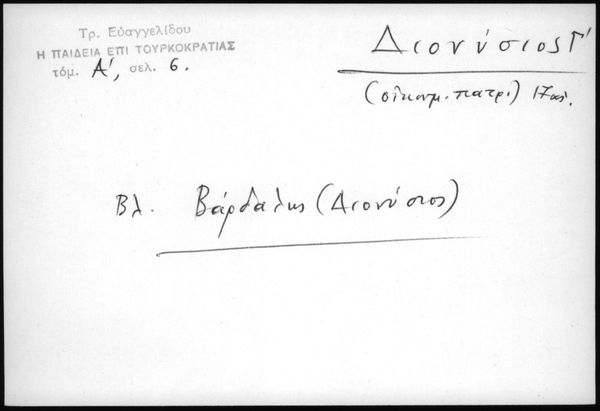 Τρ. Εὐαγγελίδου
Η ΠΑΙΔΕΙΑ ΕΠΙ ΤΟΥΡΚΟΚΡΑΤΙΑΣ
τόμ. Α', σελ. 6.
Διονύσιος Γ'
(οἰκουμ. πατρ.) 17 αἰ.
Βλ. Βάρδαλης (Διονύσιος)